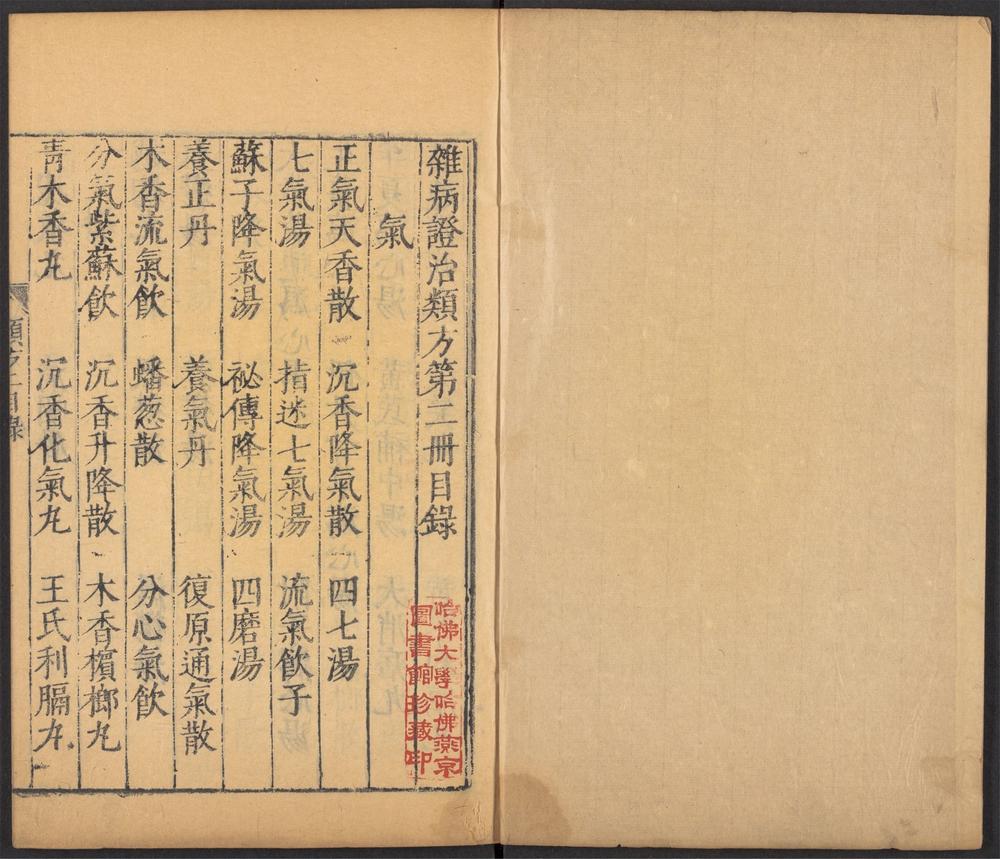 雜病證治類方第二冊目錄
氣
正氣天香散 沉香降氣散 四七湯
七氣湯 指迷七氣湯 流氣飲子
蘇子降氣湯 祕傳降氣湯 四磨湯
養正丹 養氣丹 復原通氣散
木香流氣飲 蟠葱散 分心氣飲
分氣紫蘇飲 沉香升降散 木香檳榔丸
青木香丸 沉香化氣丸 王氏利膈丸
目錄
哈佛大學哈佛燕京
圖書館珍藏印